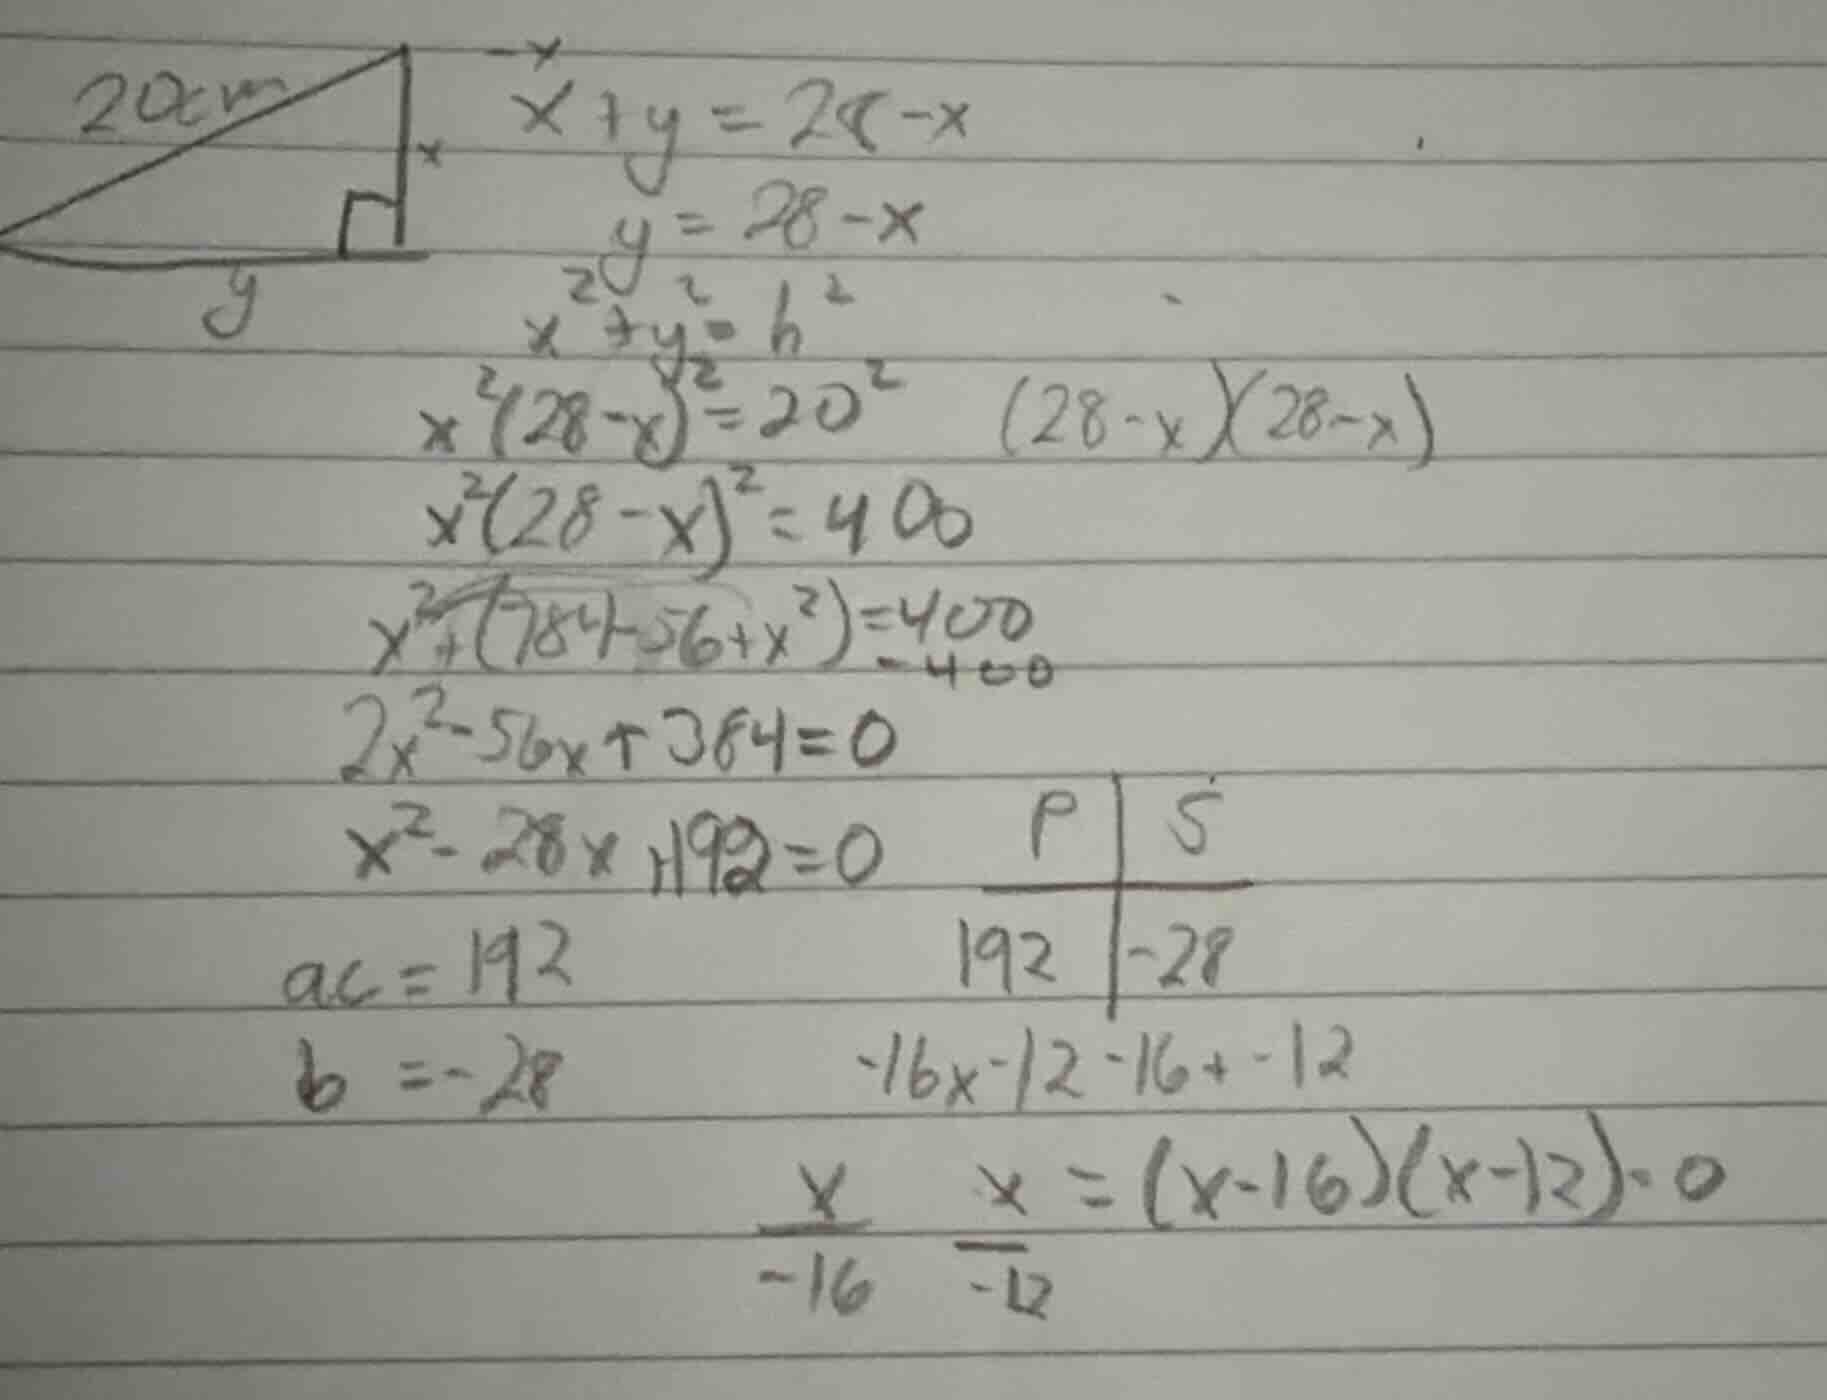 20cm
-x
x + y = 28 - x
x
y = 28 - x
y
x² + y² = h²
x²(28 - x)² = 20² (28 - x)(28 - x)
x²(28 - x)² = 400
x² + (784 - 56 + x²) = 400
- 400
2x² - 56x + 384 = 0
x² - 28x + 192 = 0
P | S
ac = 192
192 | -28
b = -28
-16x -12 -16 + -12
x/-16 x/-12 = (x - 16)(x - 12) = 0